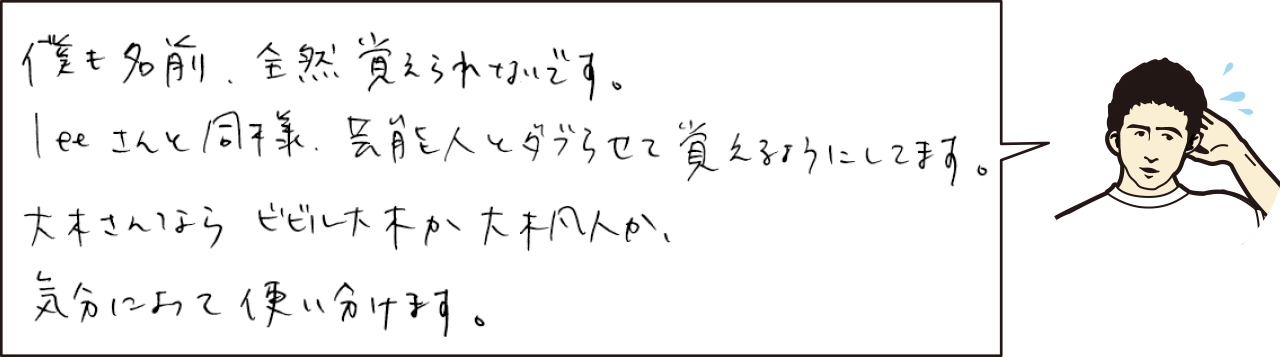 僕も名前、全然覚えられないです。
leeさんと同様、芸能人とダブらせて覚えるようにしてます。
大木さんなら ビビル大木か 大木凡人か、
気分によって使い分けます。